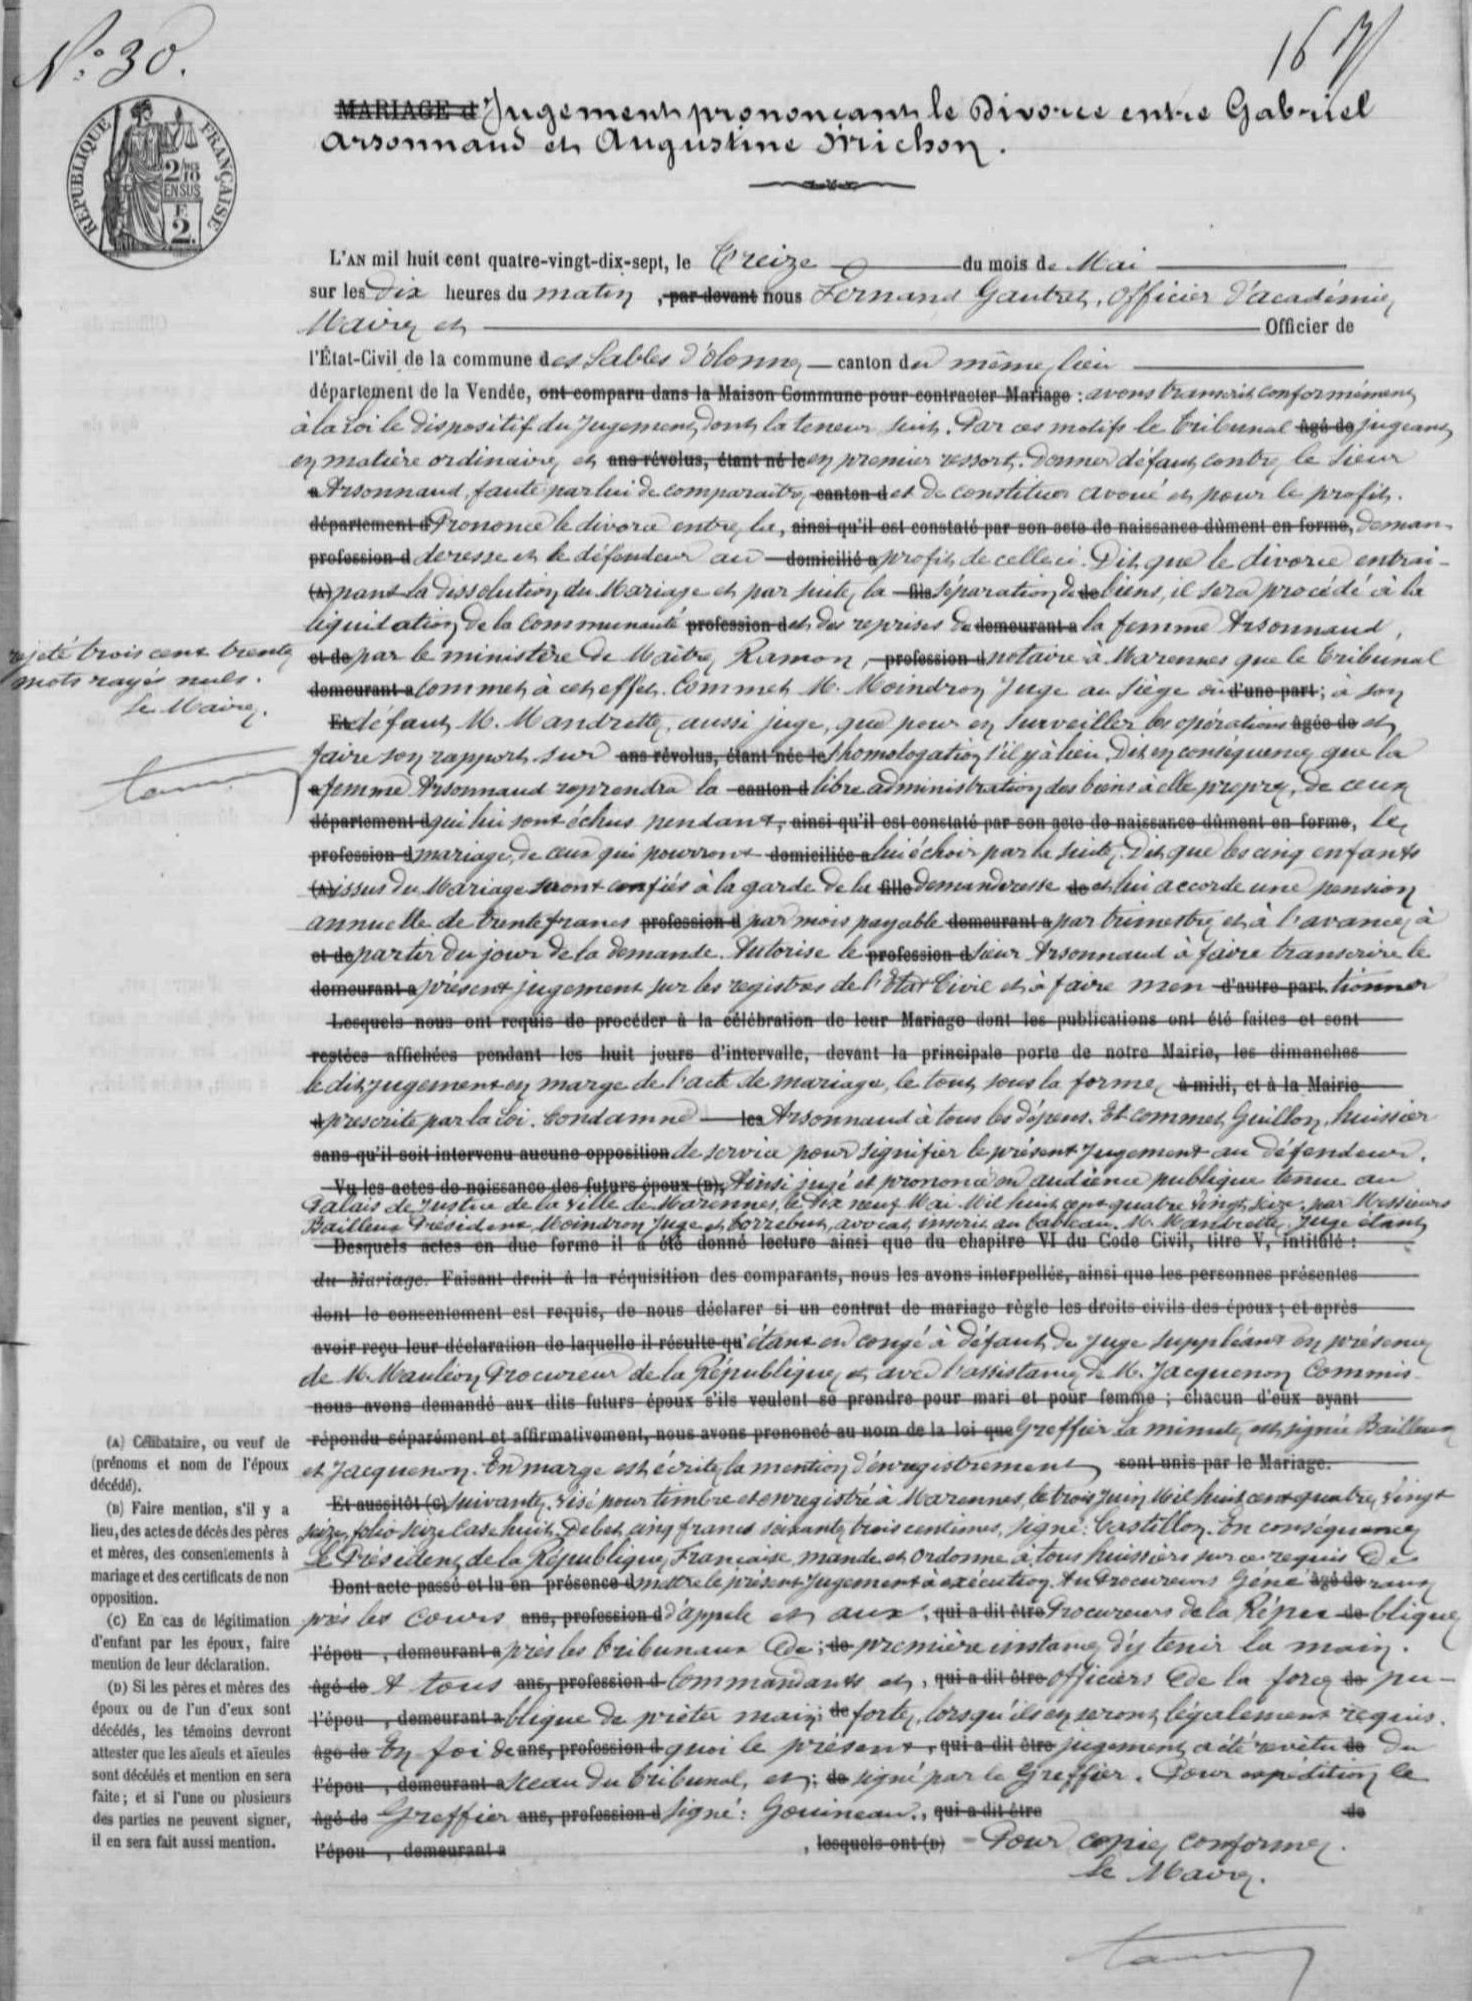 N° 30.
16
RÉPUBLIQUE FRANÇAISE
2/10
EN SUS
2
MARIAGE d Jugement prononçant le Divorce entre Gabriel
Arsonnaud et Augustine Michon.
L'AN mil huit cent quatre-vingt-dix-sept, le Treize du mois de Mai
sur les Dix heures du matin, par devant nous Fernand Gautret, Officier d'académie,
Maire et Officier de
l'État-Civil de la commune des Sables d'Olonne canton du même lieu
département de la Vendée, ont comparu dans la Maison Commune pour contracter Mariage : avons transcrit conformément
à la Loi le dispositif du Jugement dont la teneur suit. Par ces motifs le Tribunal âgé de jugeant
en matière ordinaire et ans révolus, étant né le en premier ressort. Donner défaut contre le Sieur
a Arsonnaud, faute par lui de comparaître canton d et de constituer avoué et pour le profit.
département d Prononce le divorce entre la, ainsi qu'il est constaté par son acte de naissance dûment en forme, deman-
profession d deresse et le défendeur au domicilié a profit de celle ci. Dit que le divorce entrai-
(A) nant la dissolution du Mariage et par suite la fils séparation de de biens, il sera procédé à la
liquidation de la Communauté profession d et des reprises de demeurant a la femme Arsonnaud,
et de par le ministère de Maître Ramon, profession d notaire à Marennes que le Tribunal
rejeté trois cent trente
mots rayés nuls.
Le Maire.
demeurant a Commet à cet effet. Commet M. Moindron Juge au Siège ou d'une part ; à son
Et défaut M. Mandrette, aussi juge, que pour en surveiller les opérations âgée de et
faire son rapport sur ans révolus, étant née le l'homologation s'il y a lieu. Dit en conséquence que la
a femme Arsonnaud reprendra la canton d libre administration des biens à elle propre, de ceux
département d qui lui sont échus pendant, ainsi qu'il est constaté par son acte de naissance dûment en forme, le
profession d mariage, de ceux qui pourront domiciliée a lui échoir par la suite. Dit que les cinq enfants
(A) issus du Mariage seront confiés à la garde de la fille demanderesse de et lui accorde une pension
annuelle de trente francs profession d par mois payable demeurant a par trimestre et à l'avance, à
et de partir du jour de la demande. Autorise le profession d Sieur Arsonnaud à faire transcrire le
demeurant a présent jugement sur les registres de l'Etat Civil et à faire men d'autre part. tionner
Lesquels nous ont requis de procéder à la célébration de leur Mariage dont les publications ont été faites et sont
restées affichées pendant les huit jours d'intervalle, devant la principale porte de notre Mairie, les dimanches
le dit jugement en marge de l'acte de mariage, le tout sous la forme à midi, et à la Mairie
d prescrite par la Loi. Condamne les Arsonnaud à tous les dépens. Et commet Guillon, huissier
sans qu'il soit intervenu aucune opposition de service pour signifier le présent Jugement au défendeur.
Vu les actes de naissance des futurs époux (B); Ainsi jugé et prononcé en audience publique tenue au
Palais de Justice de la Ville de Marennes, le Dix neuf Mai Mil huit cent quatre vingt seize, par Messieurs
Bailleux Président, Moindron Juge et Correbut, avocat inscrit au tableau. M. Mandrette, Juge étant
Desquels actes en due forme il a été donné lecture ainsi que du chapitre VI du Code Civil, titre V, intitulé :
du Mariage. Faisant droit à la réquisition des comparants, nous les avons interpellés, ainsi que les personnes présentes
dont le consentement est requis, de nous déclarer si un contrat de mariage règle les droits civils des époux ; et après
avoir reçu leur déclaration de laquelle il résulte qu' étant en congé à défaut de Juge suppléant en présence
de M. Mauléon Procureur de la République et avec l'assistance de M. Jacquenon Commis-
nous avons demandé aux dits futurs époux s'ils veulent se prendre pour mari et pour femme ; chacun d'eux ayant
répondu séparément et affirmativement, nous avons prononcé au nom de la loi que Greffier. La minute est signée Bailleux
et Jacquenon. En marge est écrite la mention d'enregistrement sont unis par le Mariage.
Et aussitôt (C) suivante. Visé pour timbre et enregistré à Marennes, le trois Juin Mil huit cent quatre Vingt
seize, folio seize Case huit. Debet, cinq francs soixante trois centimes, signé : Castillon. En conséquence
Le Président de la République Française, mande et ordonne à tous huissiers sur ce requis de
Dont acte passé et lu en présence d mettre le présent Jugement à exécution. Au Procureurs Géné âgé de raux
près les Cours ans, profession d d'appel et aux, qui a dit être Procureurs de la Répu de blique
l'épou , demeurant a près les tribunaux de ; de première instance d'y tenir la main.
âgé de A tous ans, profession d Commandants et, qui a dit être officiers de la force de pu-
l'épou , demeurant a blique de prêter main de forte, lorsqu'ils en seront légalement requis.
âgé de En foi de ans, profession d quoi le présent, qui a dit être jugement a été revêtu de du
l'épou , demeurant a sceau du tribunal, et ; de signé par le Greffier. Pour expédition le
âgé de Greffier ans, profession d Signé : Gouineau., qui a dit être de
l'épou , demeurant a , lesquels ont (D) = Pour copie conforme.
Le Maire.
(A) Célibataire, ou veuf de
(prénoms et nom de l'époux
décédé).
(B) Faire mention, s'il y a
lieu, des actes de décès des pères
et mères, des consentements à
mariage et des certificats de non
opposition.
(C) En cas de légitimation
d'enfant par les époux, faire
mention de leur déclaration.
(D) Si les pères et mères des
époux ou de l'un d'eux sont
décédés, les témoins devront
attester que les aïeuls et aïeules
sont décédés et mention en sera
faite ; et si l'une ou plusieurs
des parties ne peuvent signer,
il en sera fait aussi mention.